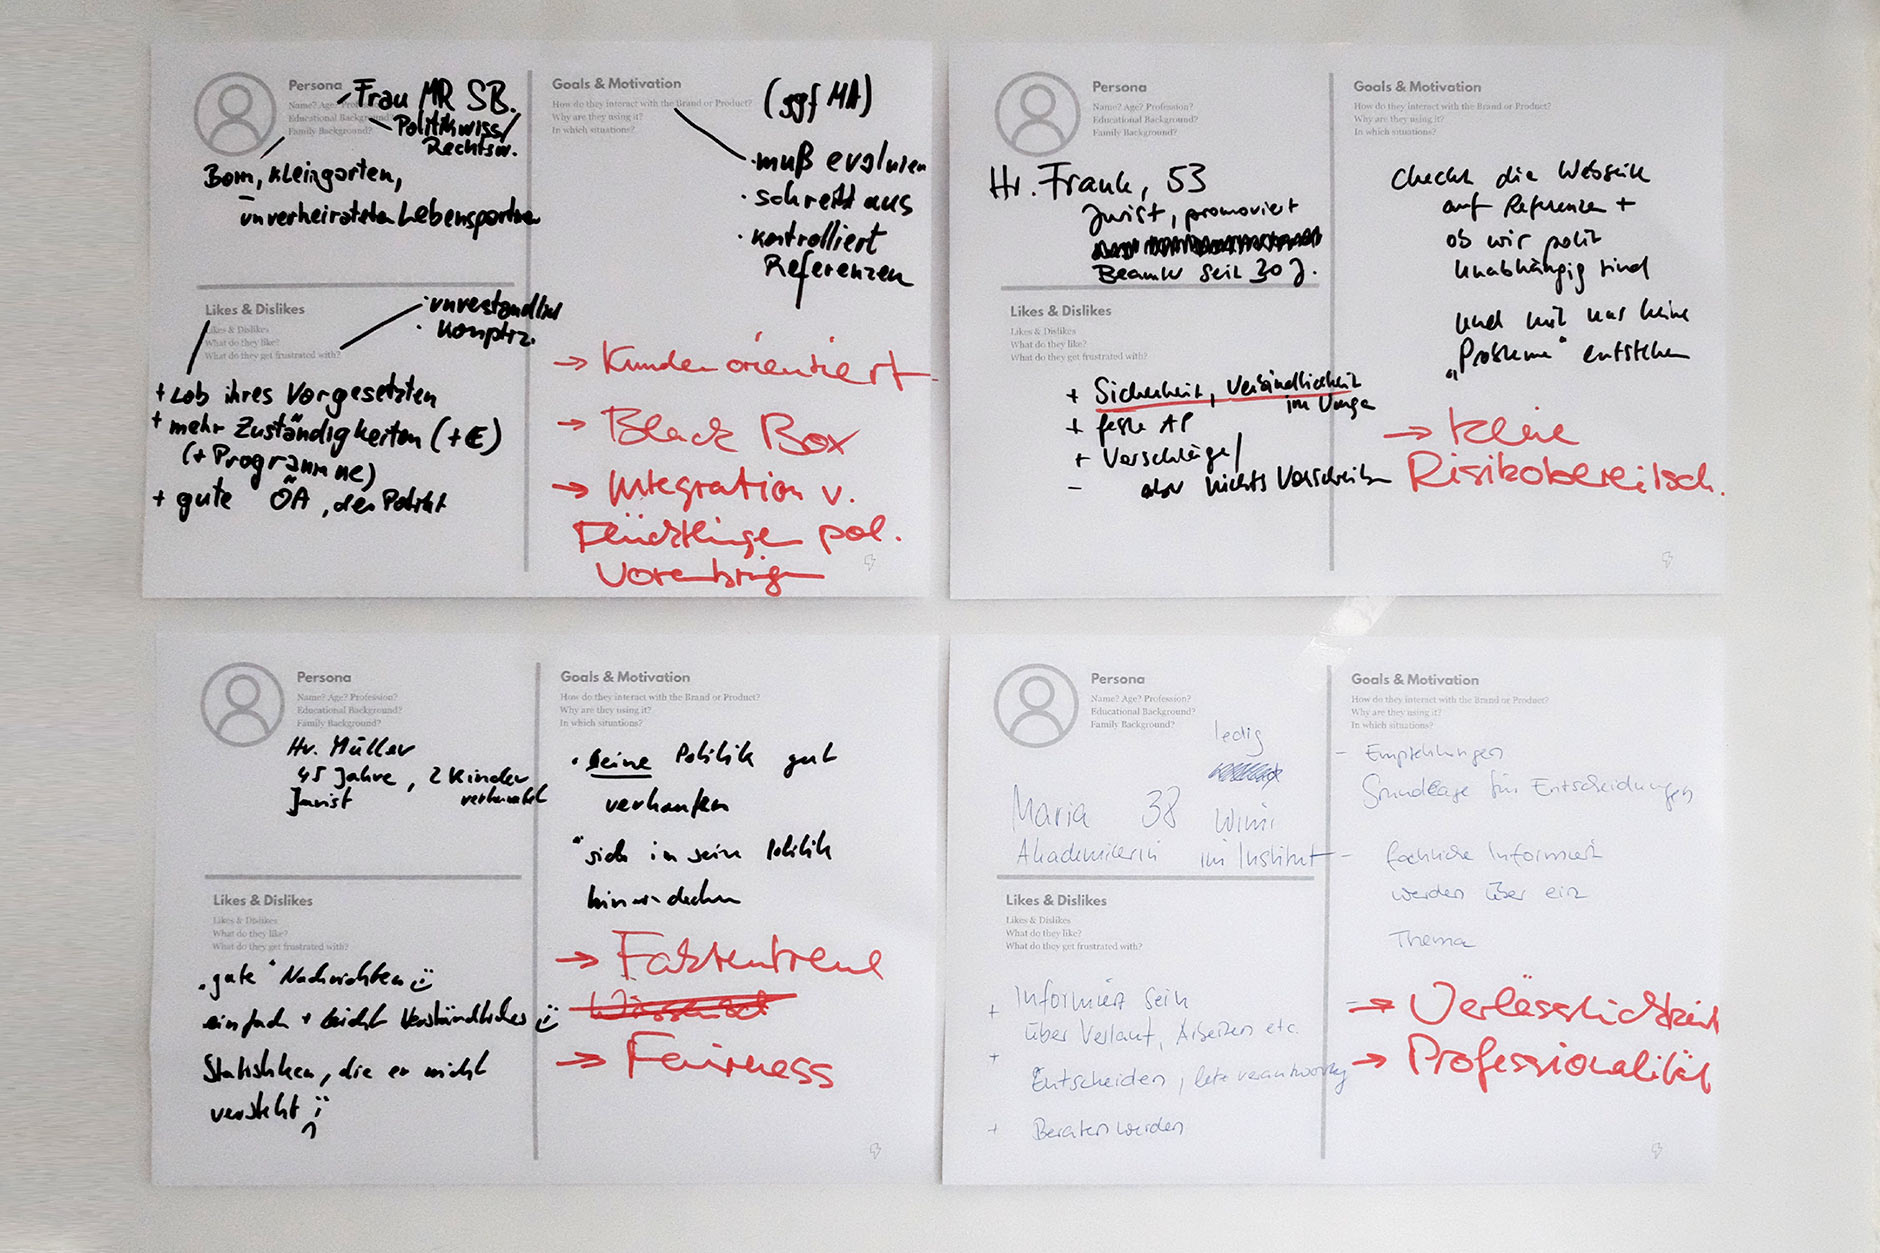 Persona
Frau MR SB.
Name? Age? Prof
Educational Background?
Politikwiss/
Rechtsw.
Family Background?
Bonn, Kleingarten,
unverheirateten Lebenspartner
Goals & Motivation
How do they interact with the Brand or Product?
Why are they using it?
In which situations?
(ggf MA)
· muß evaluieren
· schreibt aus
· kontrolliert
Referenzen
Likes & Dislikes
Likes & Dislikes
What do they like?
What do they get frustrated with?
· unverständlich
·
+ Lob ihres Vorgesetzten
+ mehr Zuständigkeiten (+€)
(+ Programme)
+ gute ÖA, der Politik
→ Kundenorientiert
→ Black Box
→ Integration v.
Flüchtlingen pol.
voranbringen
Persona
Name? Age? Profession?
Educational Background?
Family Background?
Hr. Frank, 53
Jurist, promoviert
Beamter seit 30 J.
Goals & Motivation
How do they interact with the Brand or Product?
Why are they using it?
In which situations?
Checkt die Website
auf Referenzen +
ob wir polit.
unabhängig sind
und mit uns keine
„Probleme" entstehen
Likes & Dislikes
Likes & Dislikes
What do they like?
What do they get frustrated with?
+ Sicherheit, Verbindlichkeit
im Umga
+ feste AP
+ Vorschläge/
– aber nichts Vorschreiben
→ kleine
Risikobereitsch.
Persona
Name? Age? Profession?
Educational Background?
Family Background?
Hr. Müller
45 Jahre, 2 Kinder
Jurist verheiratet
Goals & Motivation
How do they interact with the Brand or Product?
Why are they using it?
In which situations?
· seine Politik gut
verkaufen
· sich in seine Politik
Likes & Dislikes
Likes & Dislikes
What do they like?
What do they get frustrated with?
„gute" Nachrichten
einfach + leicht Verständliches
Statistiken, die er nicht
versteht
→ Faktentreue
→ Fairness
Persona
Name? Age? Profession?
Educational Background?
Family Background?
ledig
Maria 38 Wimi
Akademikerin im Institut
Goals & Motivation
How do they interact with the Brand or Product?
Why are they using it?
In which situations?
– Empfehlungen
Grundlage für Entscheidungen
– fachliche Informiert
werden über ein
Thema
Likes & Dislikes
Likes & Dislikes
What do they like?
What do they get frustrated with?
+ Informiert sein
über Verlauf, Arbeiten etc.
+ Entscheiden,
+ Beraten werden
→ Verlässlichkeit
→ Professionalität